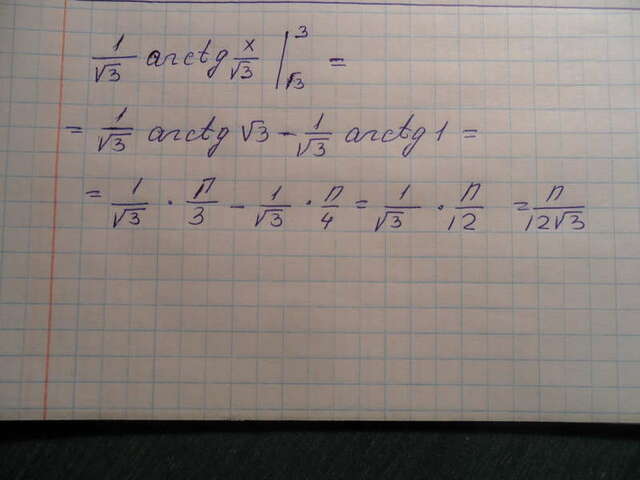 1/√3 arctg x/√3 |_{√3}^{3} =
= 1/√3 arctg √3 − 1/√3 arctg 1 =
= 1/√3 · П/3 − 1/√3 · П/4 = 1/√3 · П/12 = П/12√3